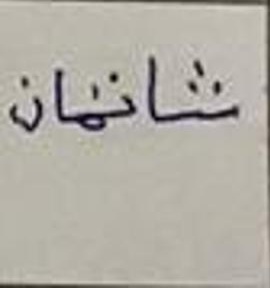 شانهان